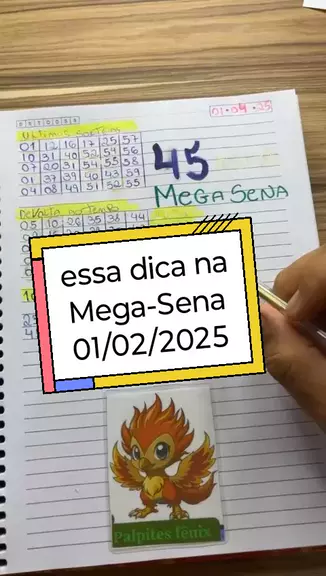 01•04•25
Ultimos sorteios
01 12 16 17 25 57
10 31 40 52 54 56
07 20 31 54 55 58
07 37 39 40 43 59
04 08 49 51 52 55
45
MEGA SENA
05 10 26 35 38 44
essa dica na
Mega-Sena
01/02/2025
Palpites fênix